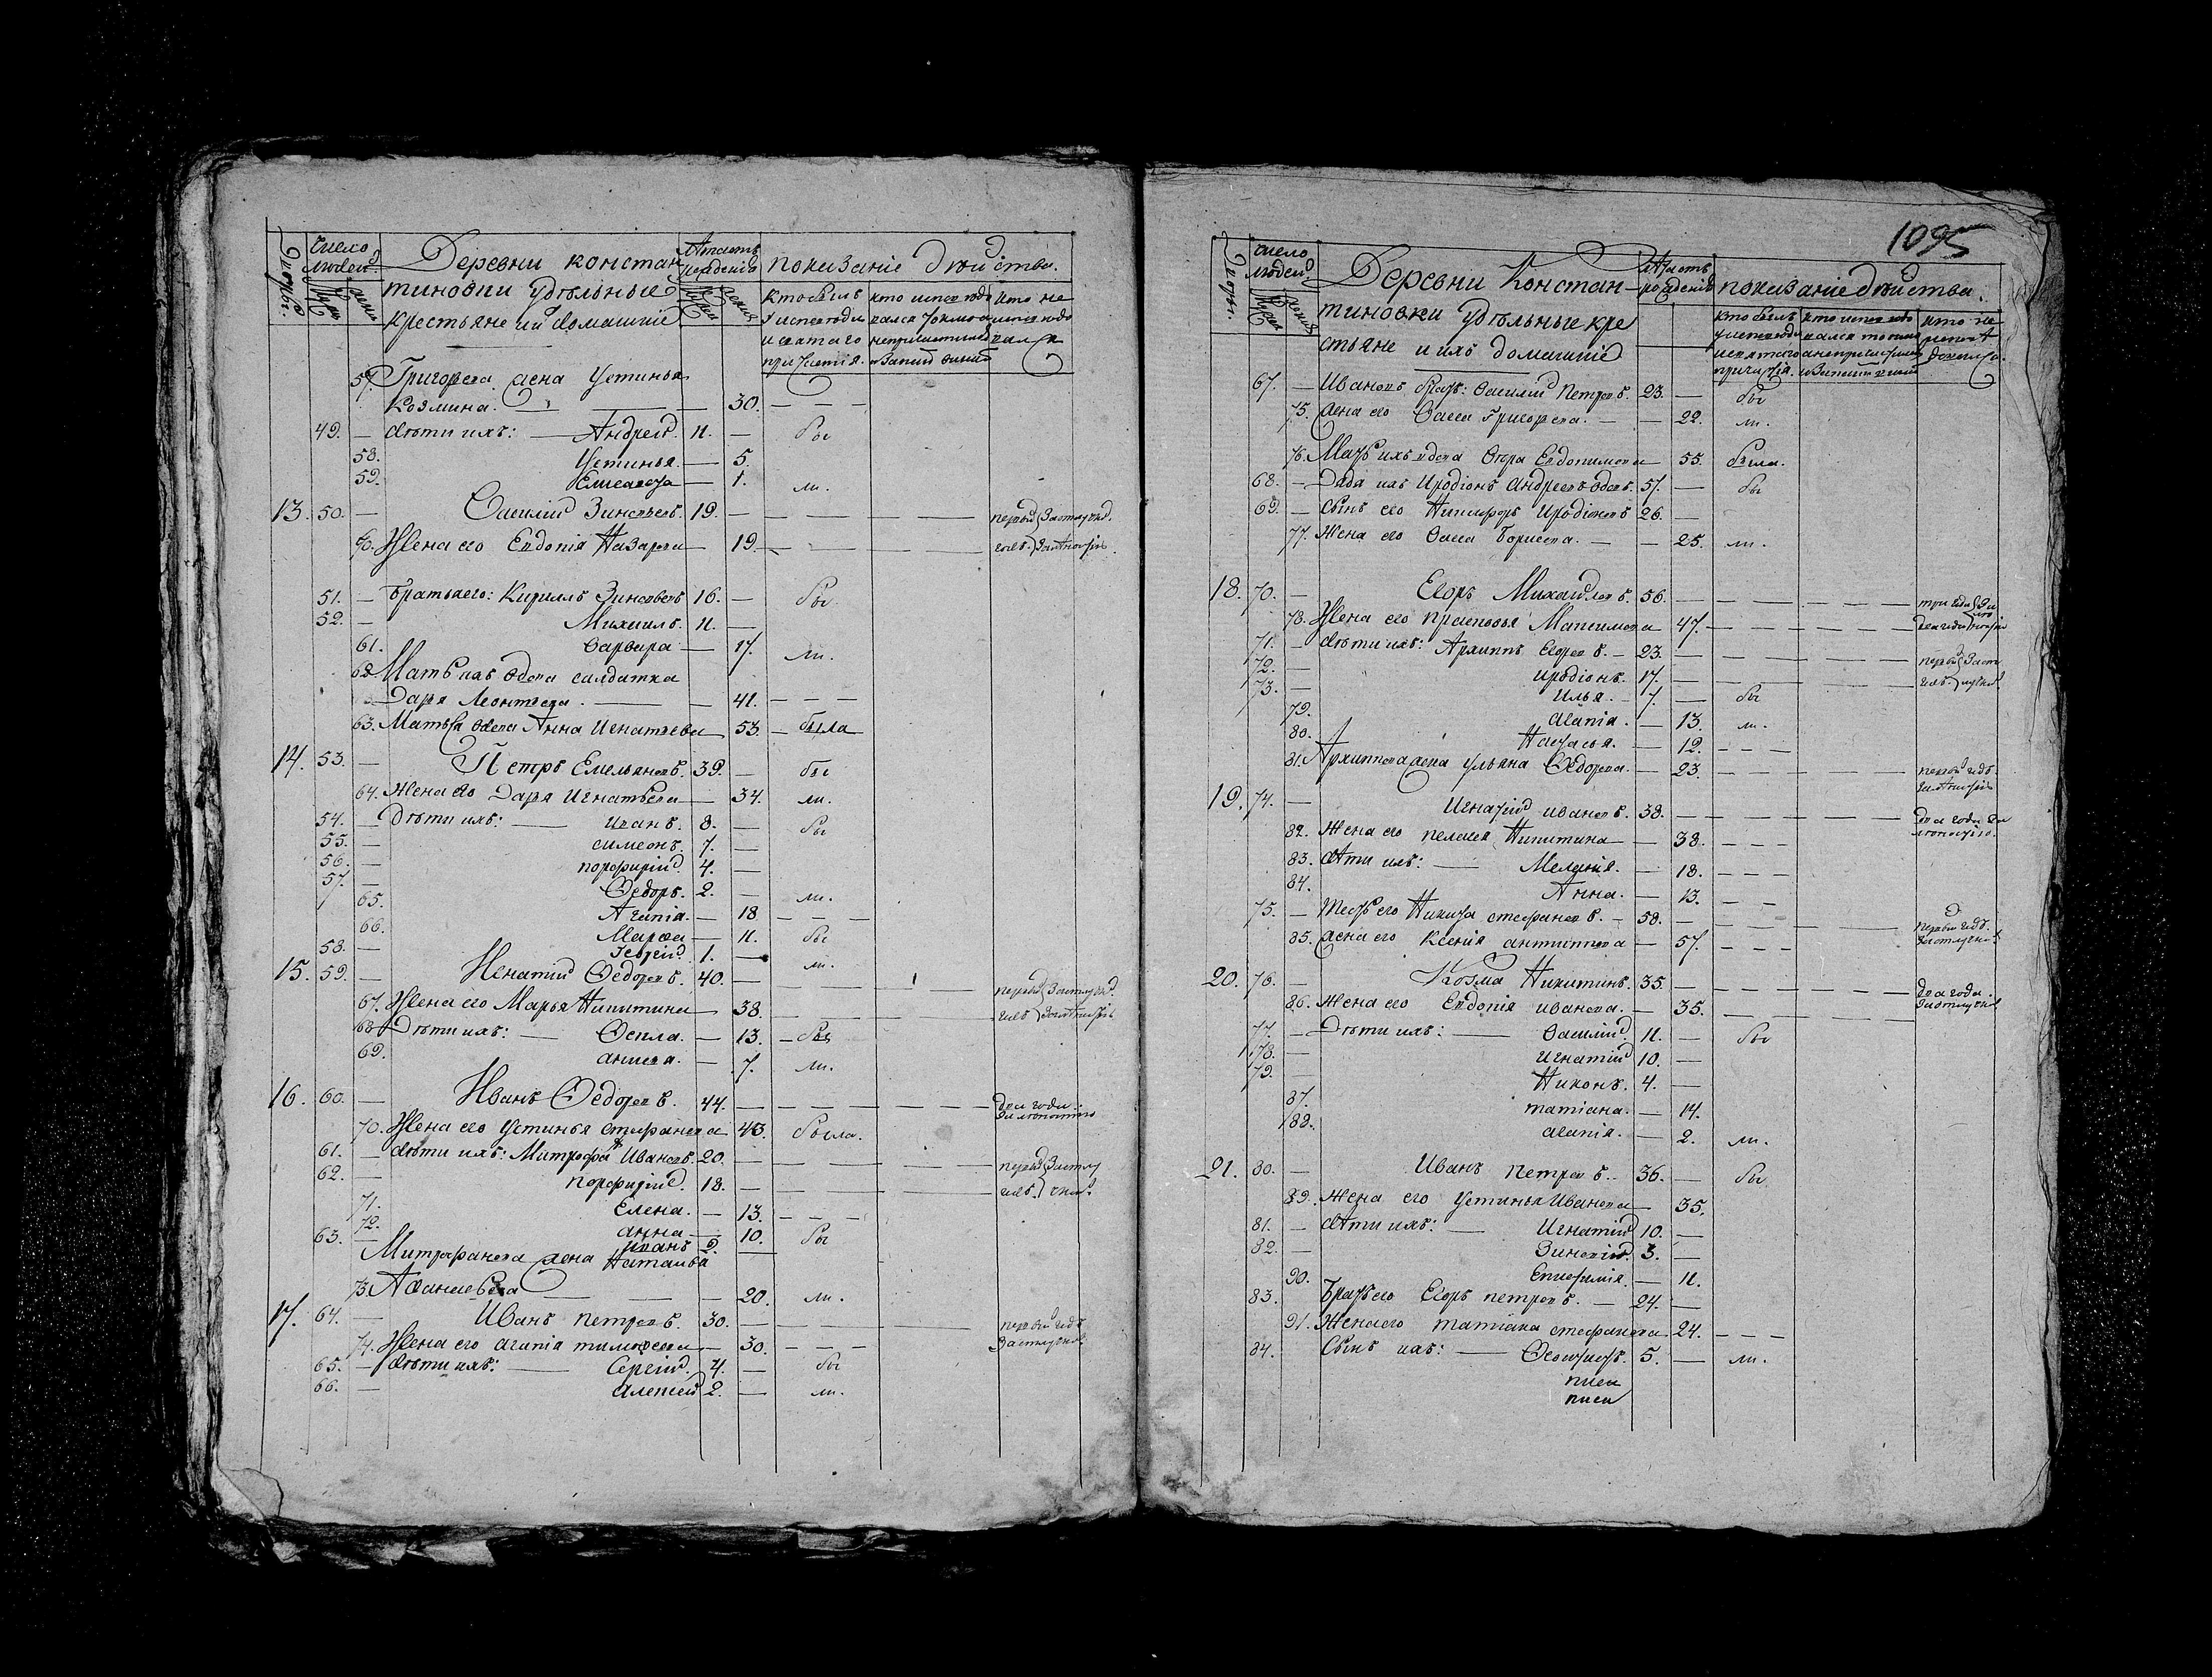 Двор.
Число людей.
Муж.
жен.
Деревни Констан
тиновки удѣльные
крестьяне и ихъ домашніе
Лѣта отъ рожденія
показаніе дѣйства.
кто былъ у исповѣди и святаго причастія.
кто исповѣдался токмо а не причастился
кто не исповѣдался
57. Григорьева жена Устинья
Козмина. — — 30. — — —
49. — дѣти ихъ: — Андрей. 11. — бы
58. Устинья. — 5.
59. Елисавета — 1. ли.
13. 50. — Василий Зиновьевъ. 19. — — — — первый
60. Жена его Евдокія Назарова — 19. — — — — годъ.
51. — Братья его: Кириллъ Зиновьевъ 16. — бы
52. — Михаилъ. 11. —
61. Варвара — 17. ли.
62. Мать ихъ вдова салдатка
Дарья Леонтьева. — — 41. — — —
63. Мать вдова Анна Игнатьева 53. — была
14. 53. — Петръ Емельяновъ. 39. — бы
64. Жена его Дарья Игнатьева — 34. ли.
54. — Дѣти ихъ: — Иванъ. 8. — бы
55. — Симеонъ. 7. —
56. — Порфирий. 4. —
57. — Ѳедоръ. 2. — ли.
65. Агапія. — 18 — — —
66. Марѳа — 11. бы
58. — 1. — ли.
15. 59. — Игнатий Ѳедоровъ. 40. — — — — первый
67. Жена его Марья Никитина — 38. — — — — годъ
68. Дѣти ихъ: — Ѳекла. — 13. — бы
69. Анисья. — 7. ли.
16. 60. — Иванъ Ѳедоровъ. 44. — — — — два года.
70. Жена его Устинья Стефанова 43. была.
61. — дѣти ихъ: Митрофанъ Ивановъ. 20. — — — — первый
62. — Порфирий. 18. — — — — годъ.
71. Елена. — 13. — — —
72. Анна — 10. бы
63. — Иванъ 2. —
Митрофанова жена Наталья
73. Аѳанасьева — — 20. ли.
17. 64. — Иванъ Петровъ. 30. — — — — первый годъ
74. Жена его Агапія Тимоѳеева — 30. — — —
65. — дѣти ихъ: — Сергий. 4. — бы
66. — Алексей 2. — ли.
1095
Двор.
Число людей.
Муж.
жен.
Деревни Констан
тиновки удѣльные кре
стьяне и ихъ домашніе
Лѣта отъ рожденія
показаніе дѣйства.
кто былъ у исповѣди и святаго причастія.
67. — Ивановъ братъ: Василий Петровъ. 23. — бы
75. жена его Васса Григорьева. — — 22. ли.
76. Мать ихъ вдова Вѣра Евдокимова 55. была.
68. — Дядя ихъ Иродіонъ Андреевъ вдовъ. 57. — бы
69. — Сынъ его Никифоръ Иродіоновъ 26. —
77. Жена его Васса Борисова. — — 25. ли.
18. 70. — Егоръ Михайловъ. 56. — — — — три года
78. Жена его Прасковья Максимова 47. — — — —
71. — дѣти ихъ: Архиппъ Егоровъ. — 23. — — — — первый
72. — Иродіонъ. 17. — — — — годъ
73. — Илья. 7. — бы
79. Агапія. — 13. ли.
80. Настасья. — 12. — — —
81. Архиппова жена Ульяна Ѳедорова. — 23. — — — — первый годъ
19. 74. — Игнатий Ивановъ. 38. — — — — два года
82. Жена его Пелагея Никитина — 38. — — —
83. дѣти ихъ: — Меланія. — 18. — — —
84. Анна. — 13. — —
75. — Тесть его Никита Стефановъ. — 58. — первый годъ.
85. жена его Ксенія Антиппова — 57. — — —
20. 76. — Козма Никитинъ. 35. — — — — два года.
86. Жена его Евдокія Иванова. — 35. — — — —
77. — Дѣти ихъ: — Василий. 11. — бы
78. — Игнатий 10. —
79. — Никонъ. 4. —
87. Татіана. — 14.
88. Агапія. — 2. ли.
21. 80. — Иванъ Петровъ. 36. — бы
89. Жена его Устинья Иванова — 35.
81. — дѣти ихъ: — Игнатий 10. —
82. — Зиновий. 3. —
90. Евѳимія. — 11.
83. Братъ его Егоръ Петровъ. — 24. —
91. Жена его Татіана Стефанова 24. — — —
84. Сынъ ихъ: — Ѳеоктистъ. 5. — ли.